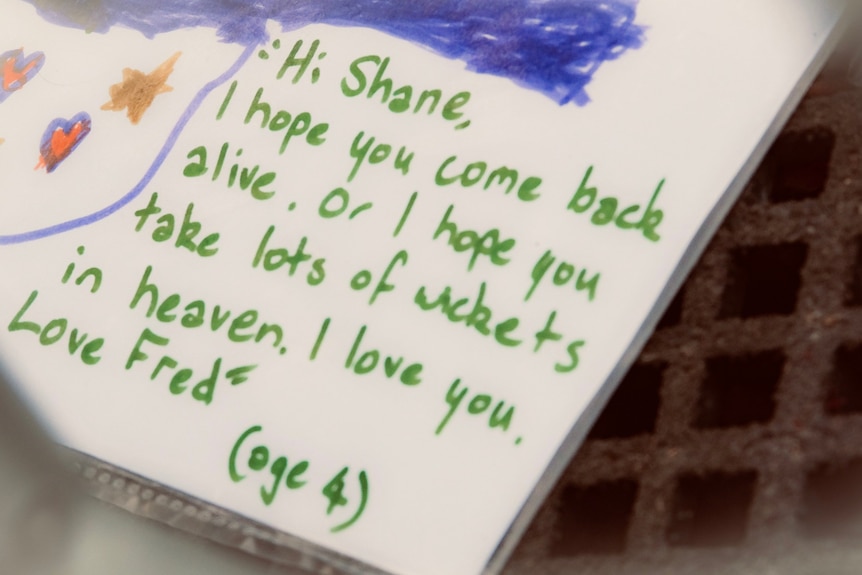 "Hi Shane,
I hope you come back
alive. Or I hope you
take lots of wickets
in heaven. I love you.
Love Fred"
(age 4)